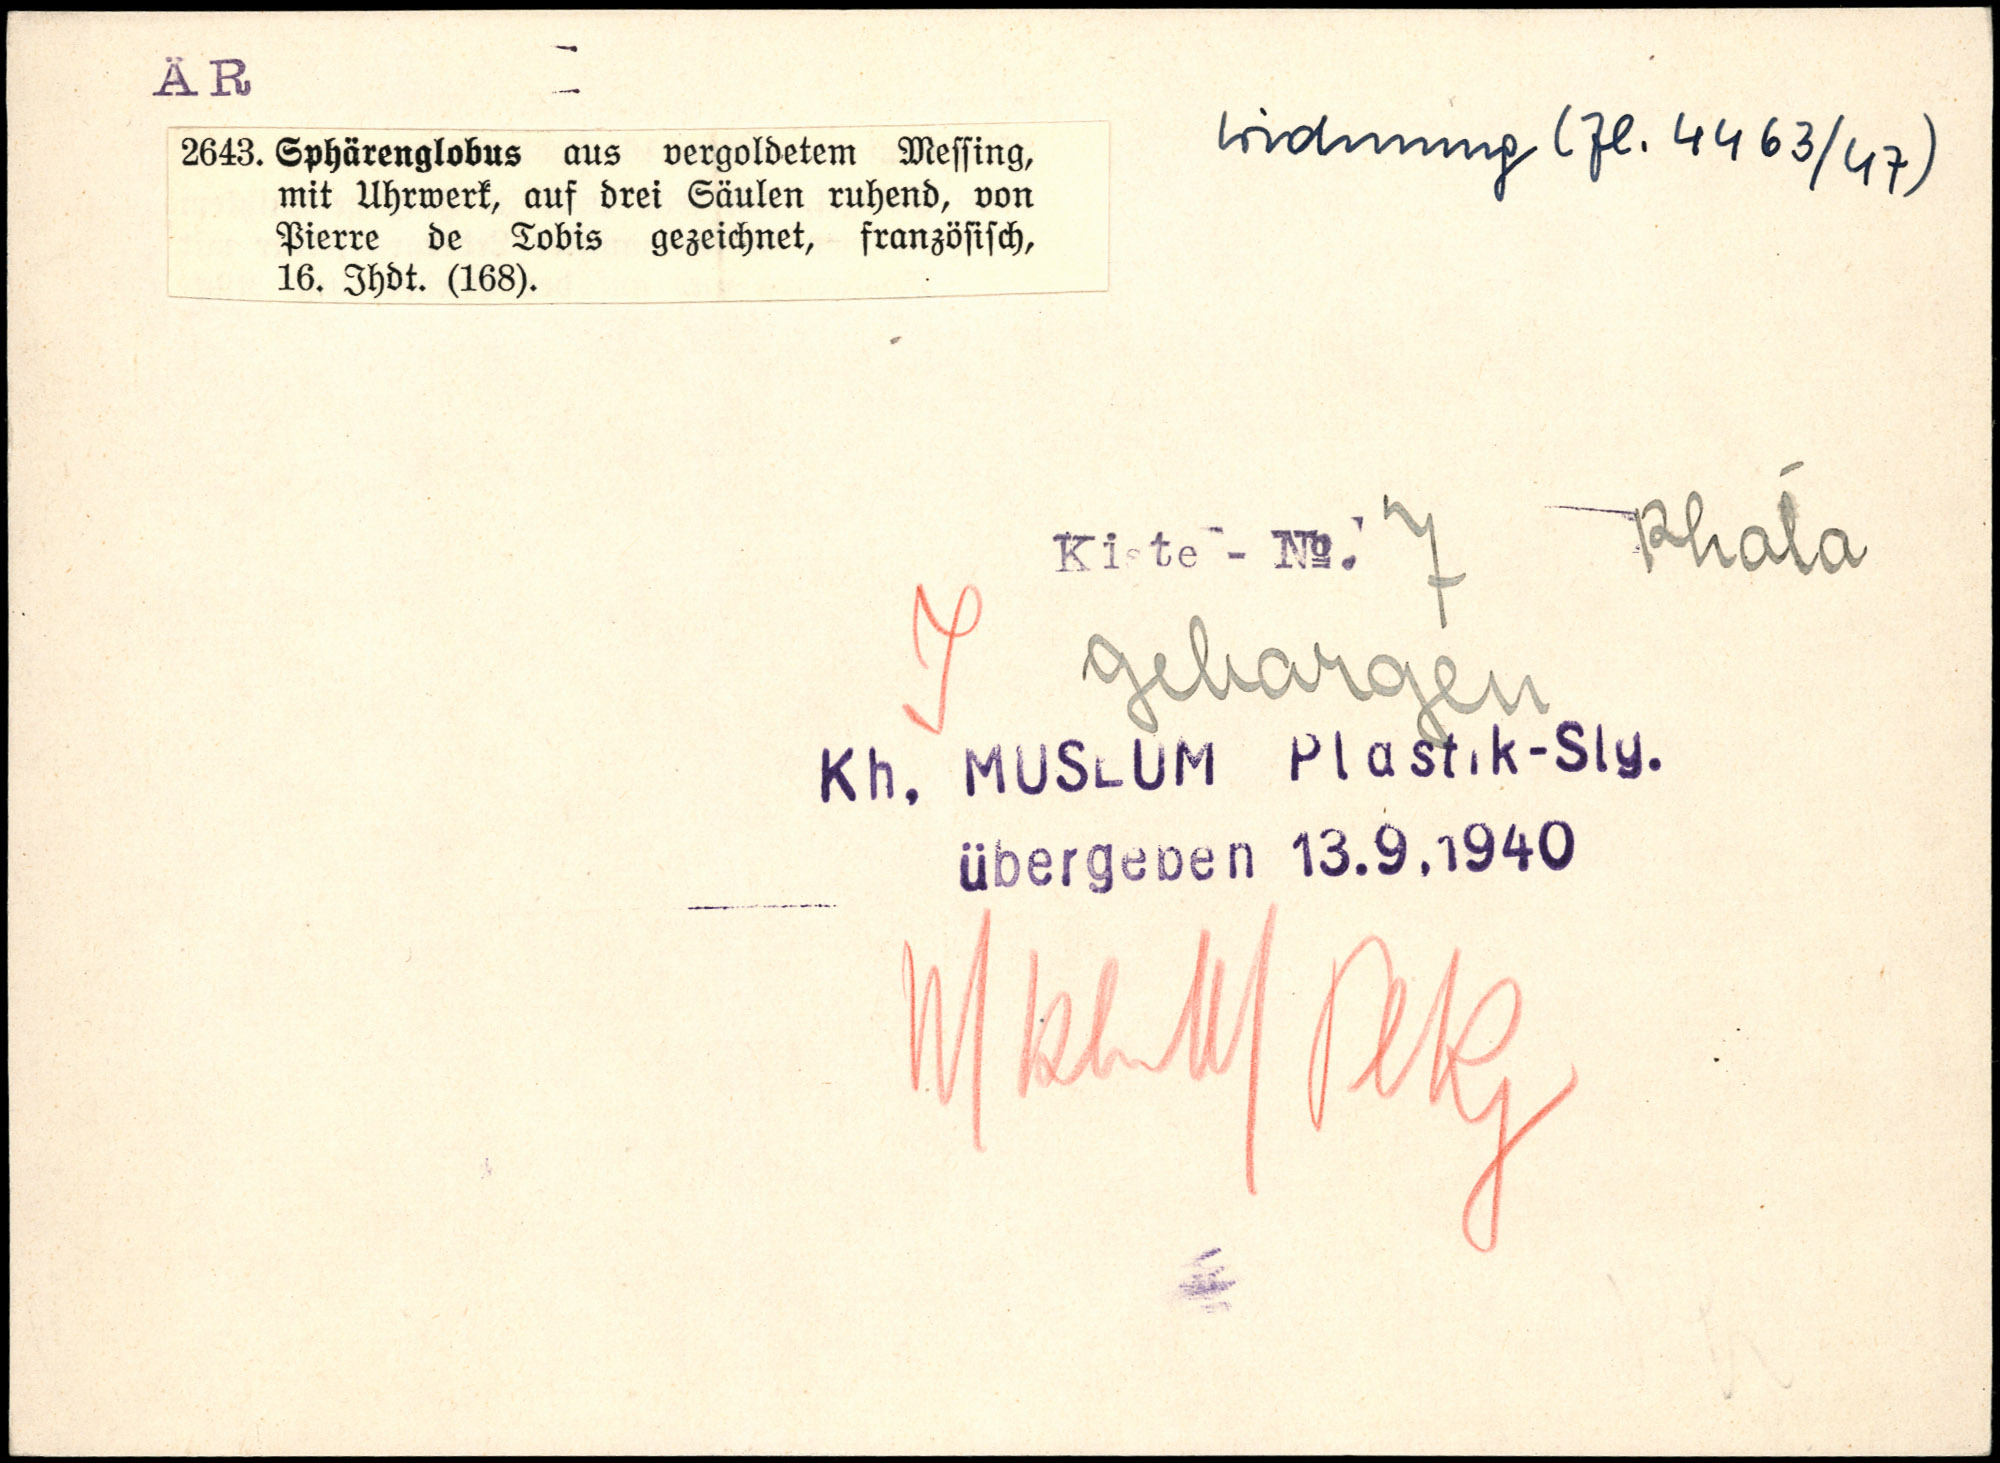 ÄR
Widmung (Zl. 4463/47)
2643. Sphärenglobus aus vergoldetem Messing,
mit Uhrwerk, auf drei Säulen ruhend, von
Pierre de Tobis gezeichnet, französisch,
16. Jhdt. (168).
Kiste - №. 7
geborgen
Kh. MUSEUM Plastik-Slg.
übergeben 13.9.1940